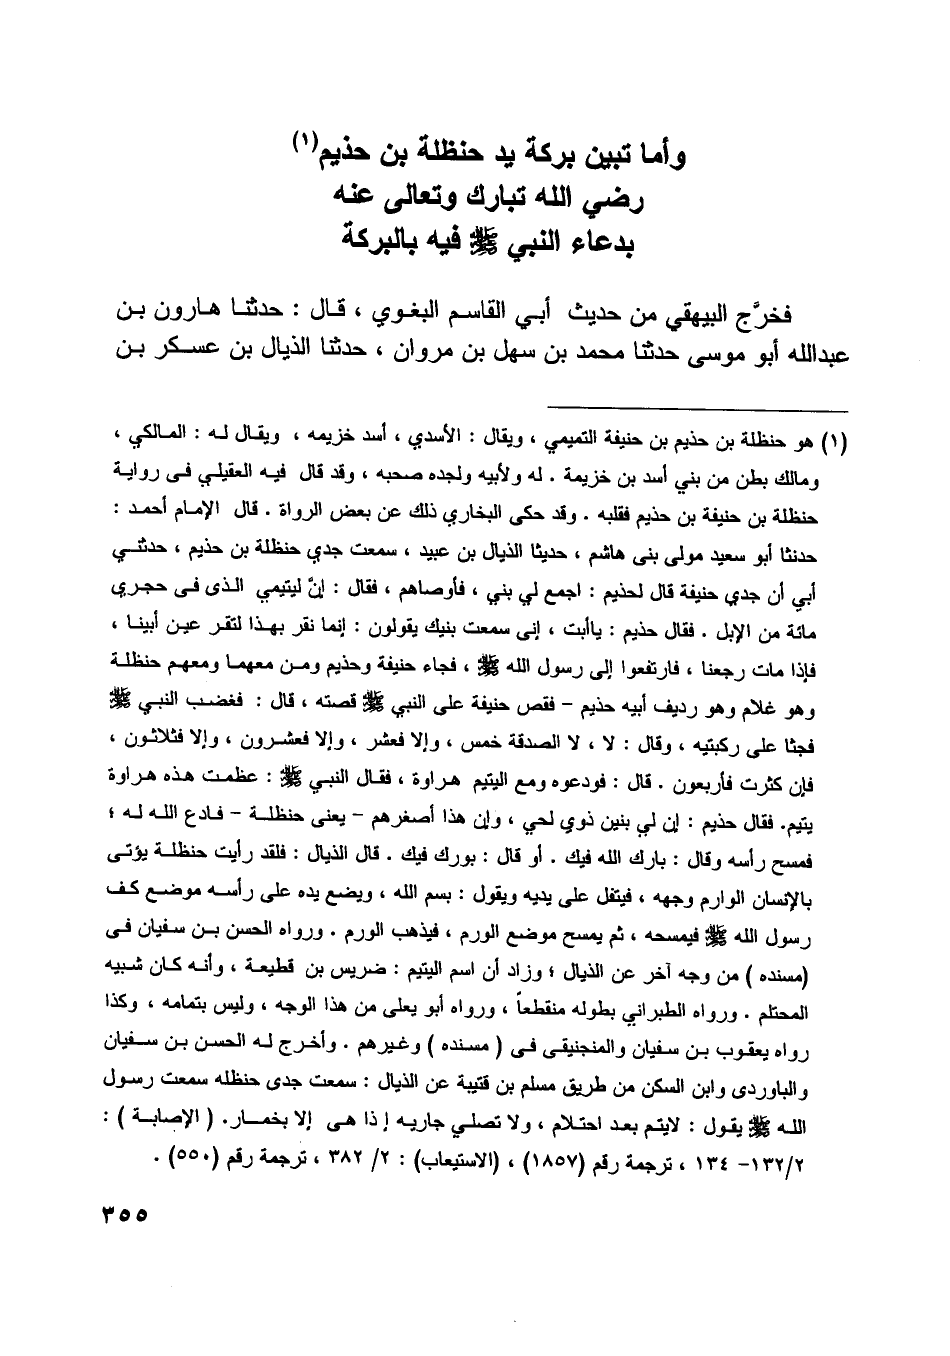 وأما تبين بركة يد حنظلة بن حذيم(١)
رضي الله تبارك وتعالى عنه
بدعاء النبي ﷺ فيه بالبركة
فخرَّج البيهقي من حديث أبي القاسم البغوي ، قال : حدثنا هارون بن
عبدالله أبو موسى حدثنا محمد بن سهل بن مروان ، حدثنا الذيال بن عسكر بن
(١) هو حنظلة بن حذيم بن حنيفة التميمي ، ويقال : الأسدي ، أسد خزيمه ، ويقال له : المالكي ،
ومالك بطن من بني أسد بن خزيمة . له ولأبيه ولجده صحبه ، وقد قال فيه العقيلي فى رواية
حنظلة بن حنيفة بن حذيم فقلبه . وقد حكى البخاري ذلك عن بعض الرواة . قال الإمام أحمد :
حدثنا أبو سعيد مولى بنى هاشم ، حديثا الذيال بن عبيد ، سمعت جدي حنظلة بن حذيم ، حدثني
أبي أن جدي حنيفة قال لحذيم : اجمع لي بني ، فأوصاهم ، فقال : إنَّ ليتيمي الذى فى حجري
مائة من الإبل . فقال حذيم : ياأبت ، إنى سمعت بنيك يقولون : إنما نقر بهذا لتقر عين أبينا ،
فإذا مات رجعنا ، فارتفعوا إلى رسول الله ﷺ ، فجاء حنيفة وحذيم ومن معهما ومعهم حنظلة
وهو غلام وهو رديف أبيه حذيم – فقص حنيفة على النبي ﷺ قصته ، قال : فغضب النبي ﷺ
فجثا على ركبتيه ، وقال : لا ، لا الصدقة خمس ، وإلا فعشر ، وإلا فعشرون ، وإلا فثلاثون ،
فإن كثرت فأربعون . قال : فودعوه ومع اليتيم هراوة ، فقال النبي ﷺ : عظمت هذه هراوة
يتيم. فقال حذيم : إن لي بنين ذوي لحي ، وإن هذا أصغرهم – يعنى حنظلة – فادع الله له ؛
فمسح رأسه وقال : بارك الله فيك . أو قال : بورك فيك . قال الذيال : فلقد رأيت حنظلة يؤتى
بالإنسان الوارم وجهه ، فيتفل على يديه ويقول : بسم الله ، ويضع يده على رأسه موضع كف
رسول الله ﷺ فيمسحه ، ثم يمسح موضع الورم ، فيذهب الورم . ورواه الحسن بن سفيان فى
(مسنده ) من وجه آخر عن الذيال ؛ وزاد أن اسم اليتيم : ضريس بن قطيعة ، وأنه كان شبيه
المحتلم . ورواه الطبراني بطوله منقطعاً ، ورواه أبو يعلى من هذا الوجه ، وليس بتمامه ، وكذا
رواه يعقوب بن سفيان والمنجنيقى فى ( مسنده ) وغيرهم . وأخرج له الحسن بن سفيان
والباوردى وابن السكن من طريق مسلم بن قتيبة عن الذيال : سمعت جدى حنظله سمعت رسول
الله ﷺ يقول : لايتم بعد احتلام ، ولا تصلي جاريه إذا هى إلا بخمار. ( الإصابة ) :
٢/‏١٣٢– ١٣٤ ، ترجمة رقم (١٨٥٧) ، (الاستيعاب) : ٢/ ٣٨٢ ، ترجمة رقم (٥٥٠) .
٣٥٥